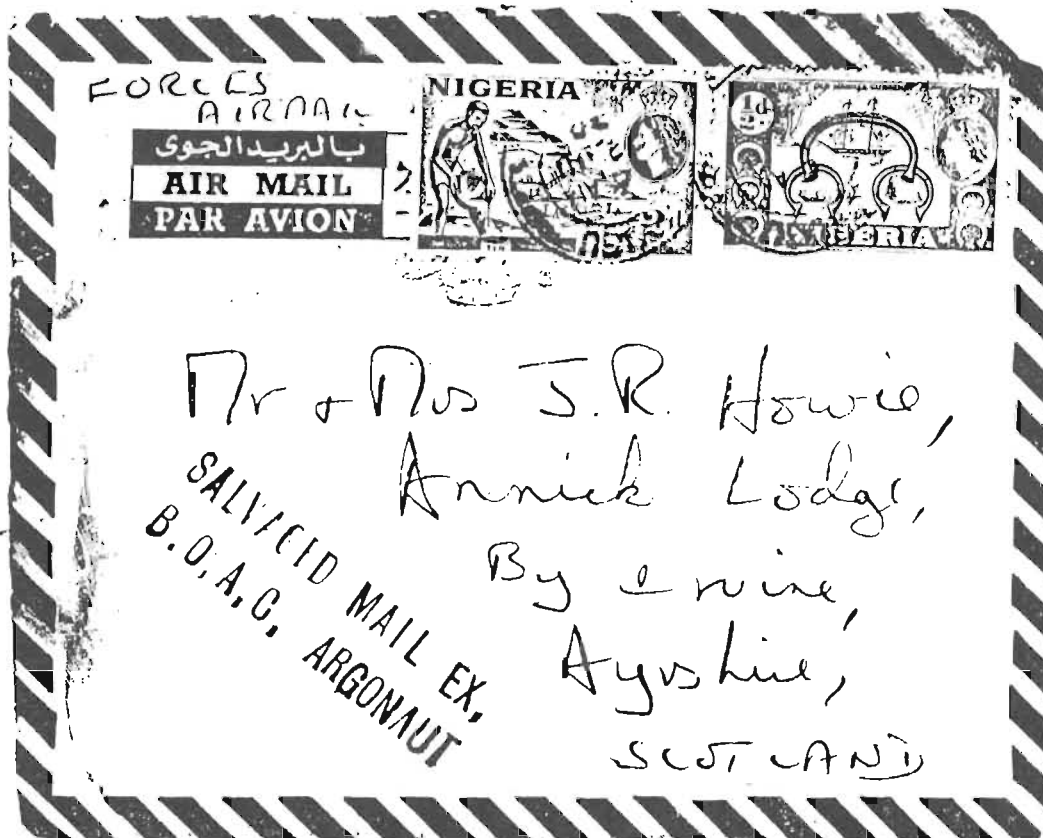 FORCES
AIRMAIL
بالبريد الجوى
AIR MAIL
PAR AVION
NIGERIA
½d
NIGERIA
Mr & Mrs J.R. Howie,
Annick Lodge,
By Irvine,
Ayrshire,
SCOTLAND
SALVAGED MAIL EX,
B.O.A.C, ARGONAUT